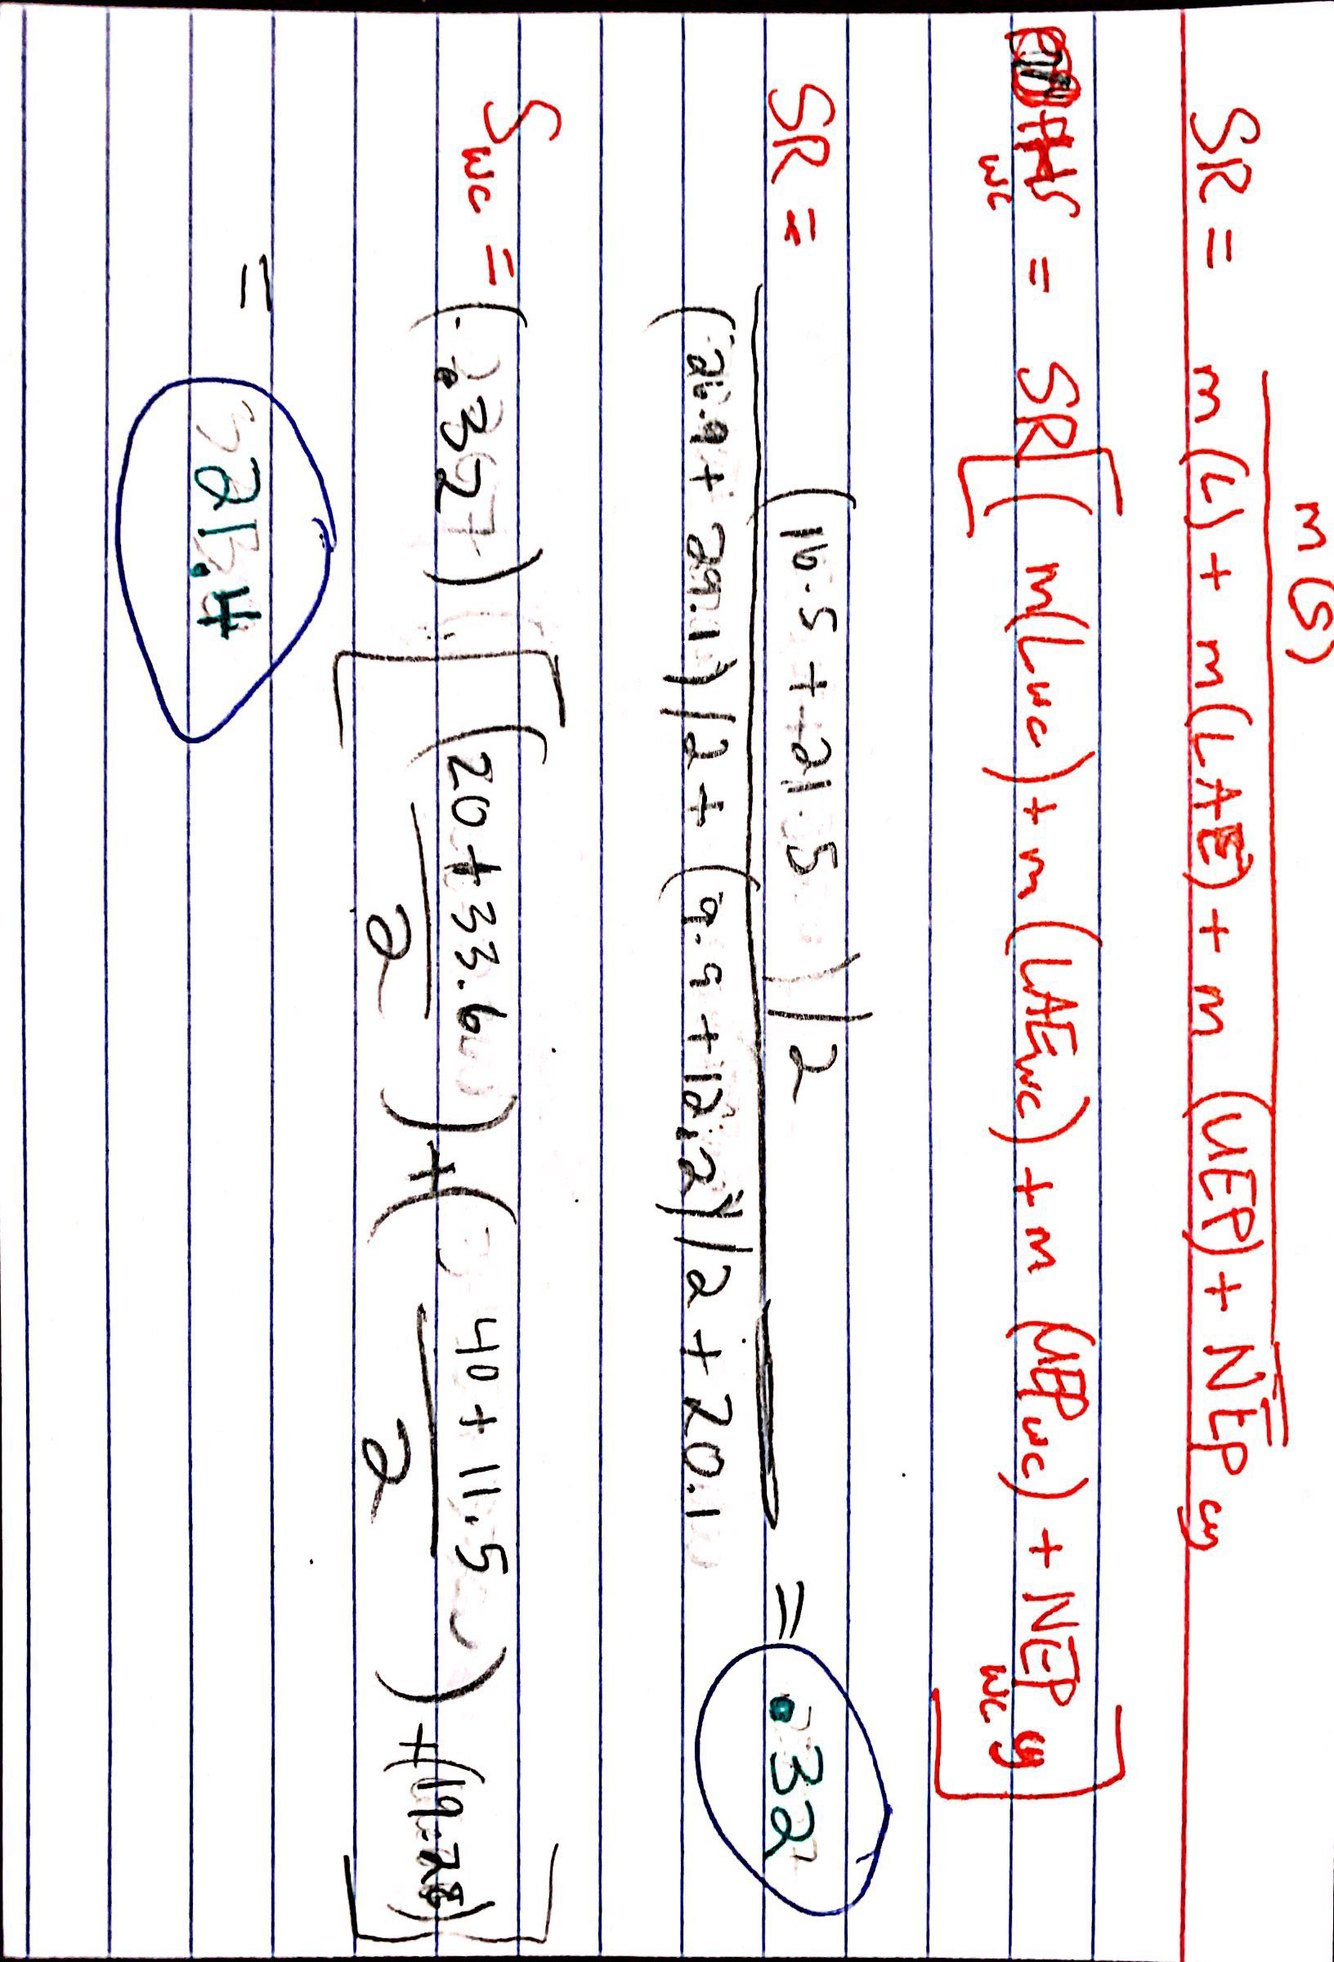 m(S)
SR = m(L) + m(LAE) + m (UEP) + NEP y
HS wc = SR [( m(Lwc) + m (LAEwc) + m (UEPwc) + NEP wc y ]
(16.5 + 21.5 )/2
SR = (26.9 + 29.1)/2 + (9.9 + 12.2)/2 + 20.1 = .32
Swc = (.32) [(20 + 33.6 / 2) + (40 + 11.5 / 2) + (19.28)]
= 21.4